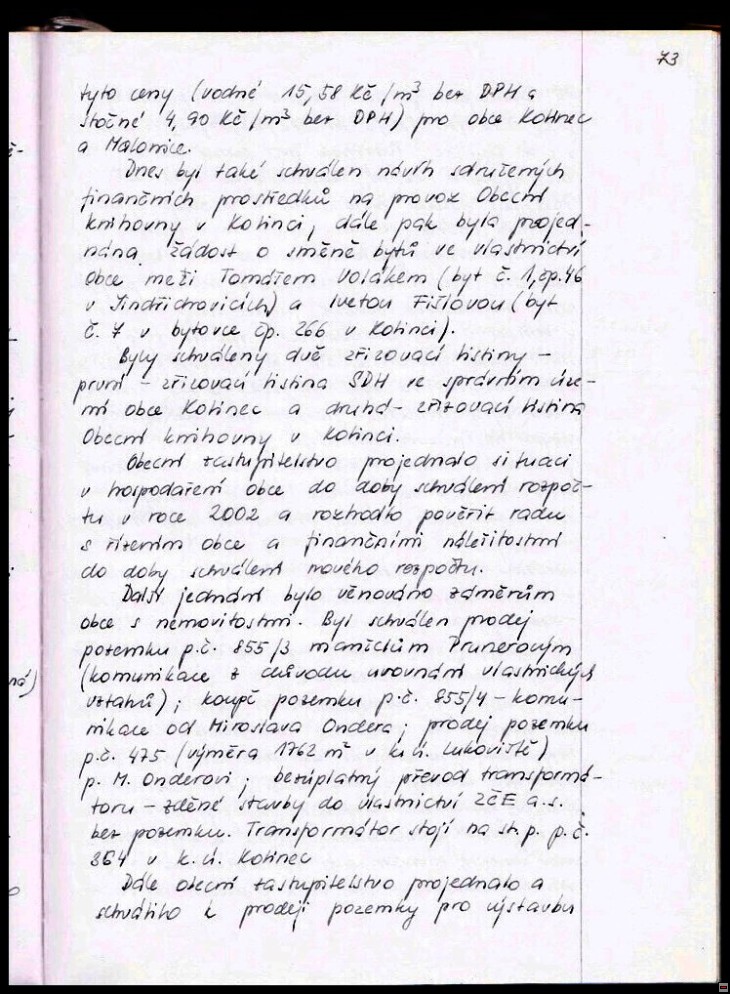 73
tyto ceny (vodné 15,58 Kč/m³ bez DPH a
stočné 4,90 Kč/m³ bez DPH) pro obce Kolinec
a Malonice.
Dnes byl také schválen návrh sdružených
finančních prostředků na provoz Obecní
knihovny v Kolinci, dále pak byla projed-
nána žádost o směně bytů ve vlastnictví
obce mezi Tomášem Volákem (byt č. 1, čp. 46
v Jindřichovicích) a Ivetou Fišlovou (byt
č. 7 v bytovce čp. 266 v Kolinci).
Byly schváleny dvě zřizovací listiny –
první – zřizovací listina SDH ve správním úze-
mí obce Kolinec a druhá – zřizovací listina
Obecní knihovny v Kolinci.
Obecní zastupitelstvo projednalo situaci
v hospodaření obce do doby schválení rozpoč-
tu v roce 2002 a rozhodlo pověřit radu
s řízením obce a finančními náležitostmi
do doby schválení nového rozpočtu.
Další jednání bylo věnováno záměrům
obce s nemovitostmi. Byl schválen prodej
pozemku p.č. 855/3 manželům Prunerovým
(komunikace z důvodu urovnání vlastnických
vztahů); koupě pozemku p.č. 855/4 – komu-
nikace od Miroslava Ondera; prodej pozemku
p.č. 475 (výměra 1762 m² v k.ú. Lukoviště)
p. M. Onderovi; bezúplatný převod transformá-
toru – zděné stavby do vlastnictví ZČE a.s.
bez pozemku. Transformátor stojí na st. p. p.č.
364 v k.ú. Kolinec
Dále obecní zastupitelstvo projednalo a
schválilo k prodeji pozemky pro výstavbu
ná)